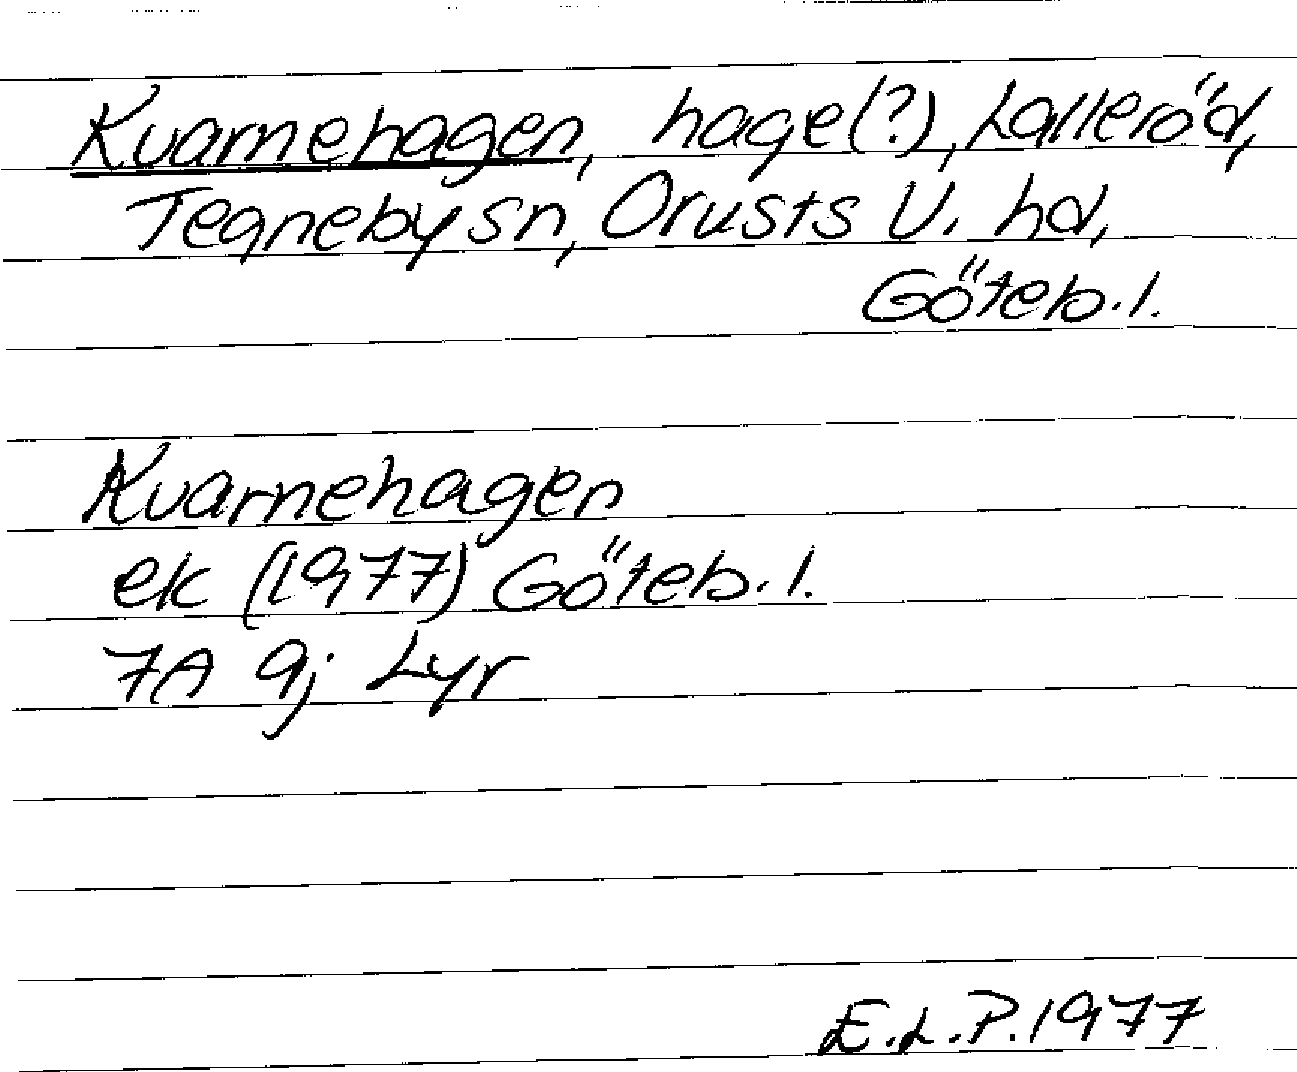 Kvarnehagen, hage(?), Lalleröd,
Tegneby sn, Orusts V. hd,
Göteb. l.
Kvarnehagen
ek (1977) Göteb. l.
7A 9j Lyr
E.L.P. 1977